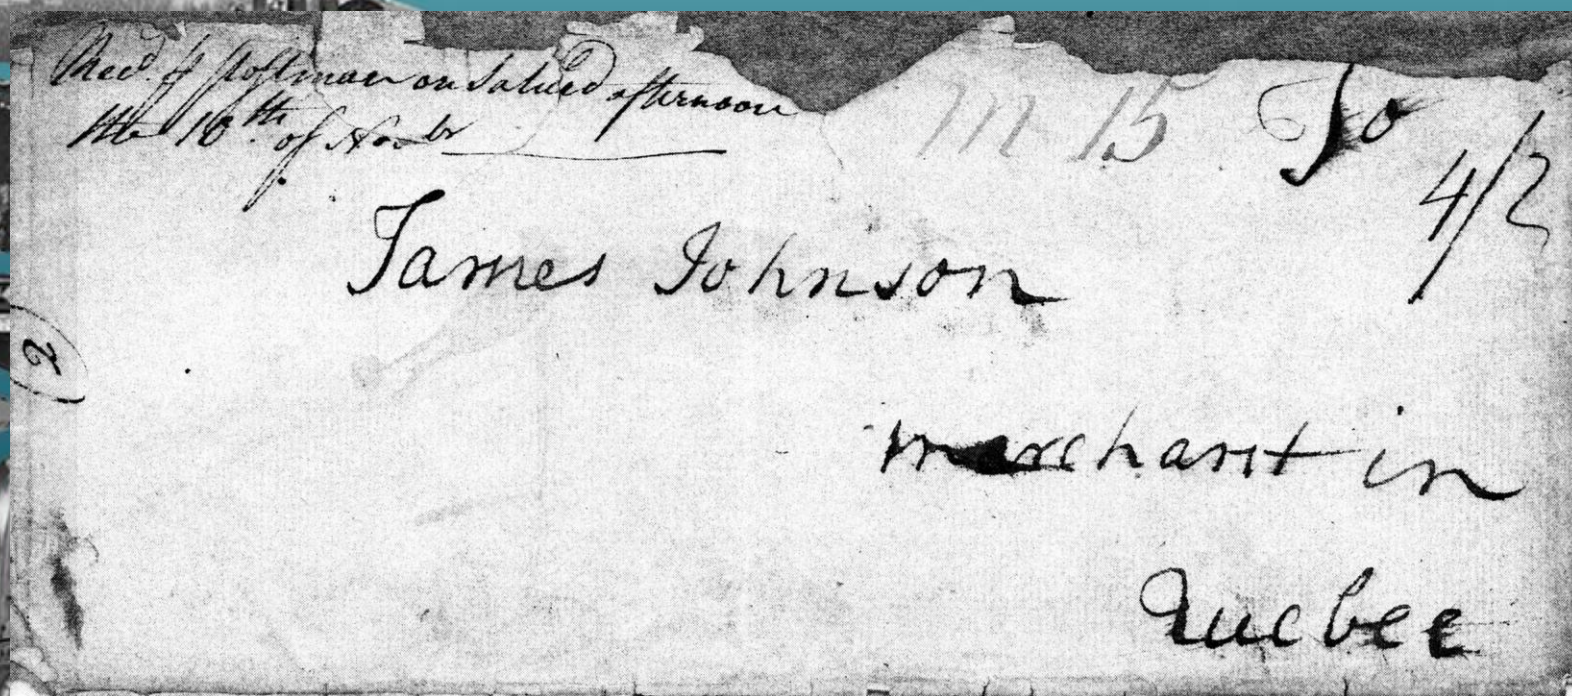 Recd. pr Postman on Saturd afternoon
the 16th. of Novbr
M 15
To
4/2
James Johnson
2
merchant in
Quebec